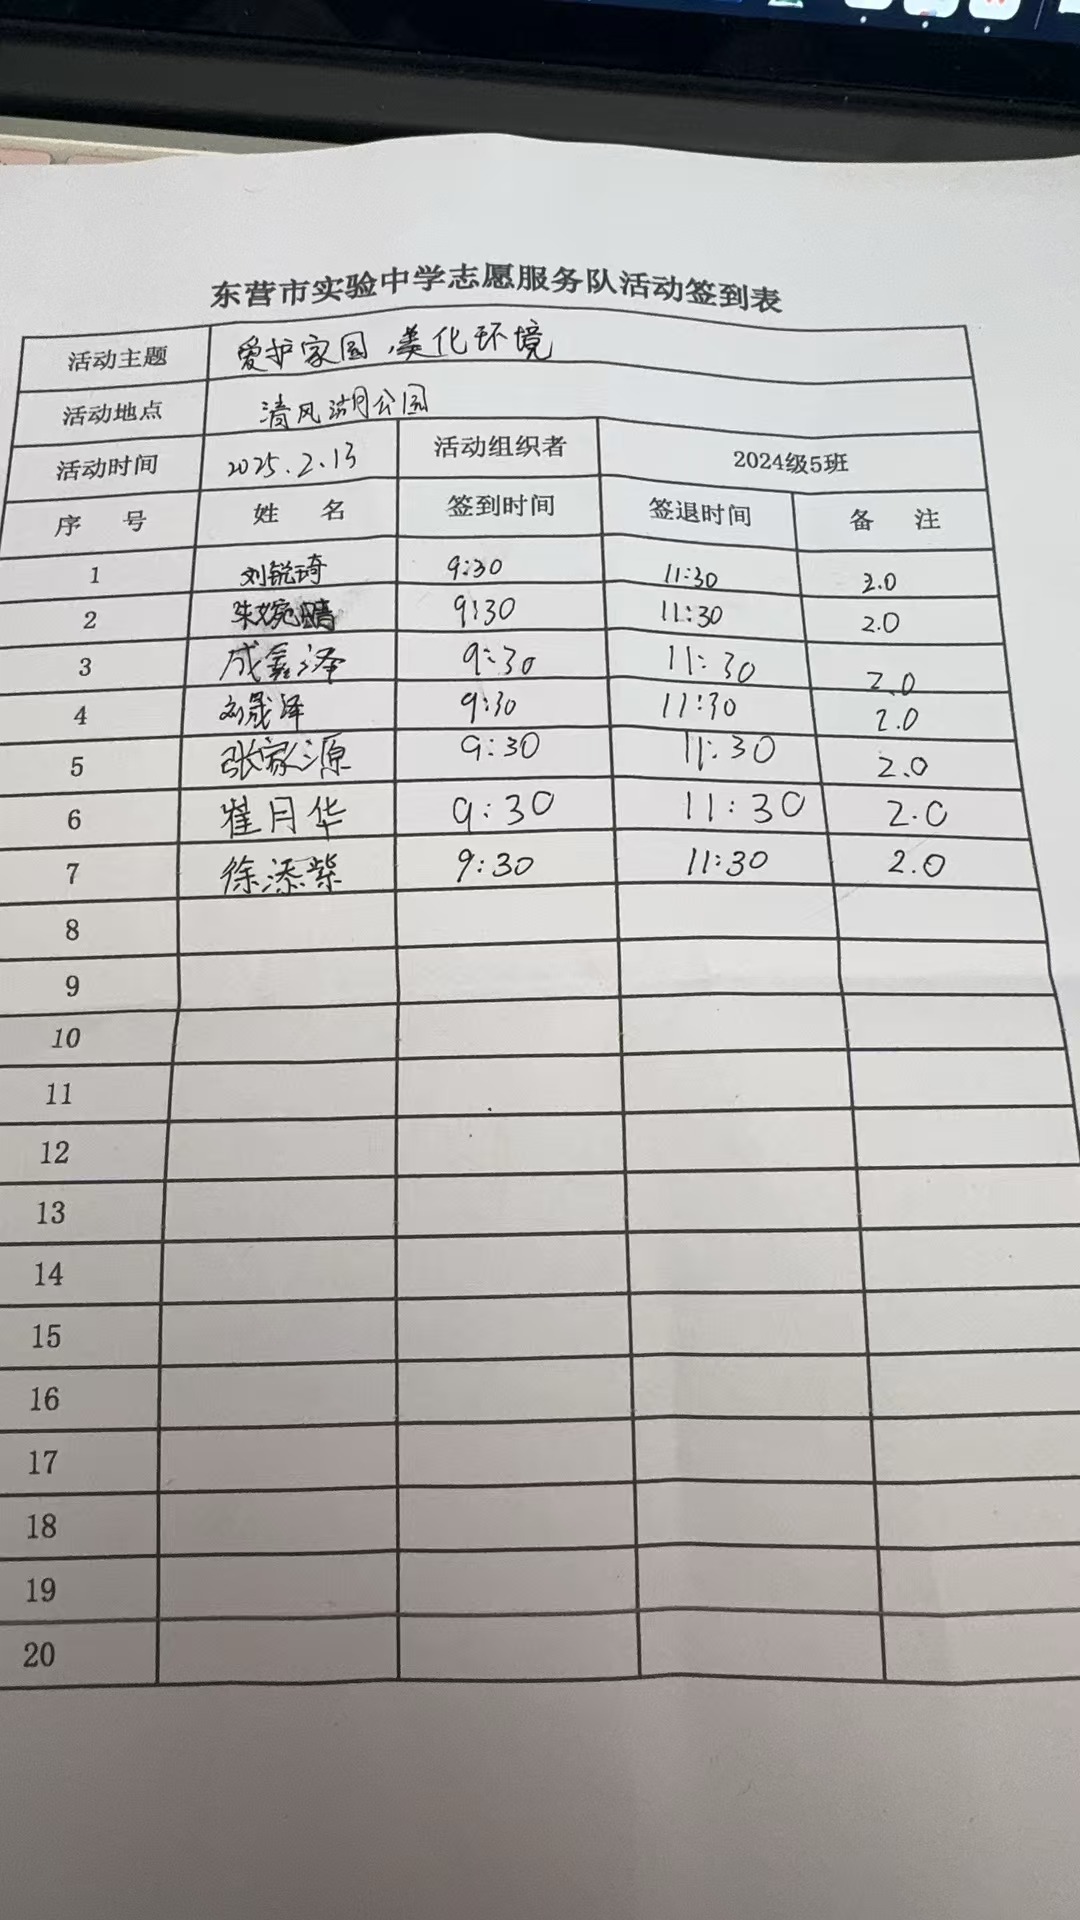 东营市实验中学志愿服务队活动签到表
活动主题 爱护家园,美化环境
活动地点 清风湖公园
活动时间 2025.2.13 活动组织者 2024级5班
序 号 姓 名 签到时间 签退时间 备 注
1 刘锐琦 9:30 11:30 2.0
2 朱婉晴 9:30 11:30 2.0
3 成鑫泽 9:30 11:30 2.0
4 刘晟泽 9:30 11:30 2.0
5 张家源 9:30 11:30 2.0
6 崔月华 9:30 11:30 2.0
7 徐添紫 9:30 11:30 2.0
8
9
10
11
12
13
14
15
16
17
18
19
20